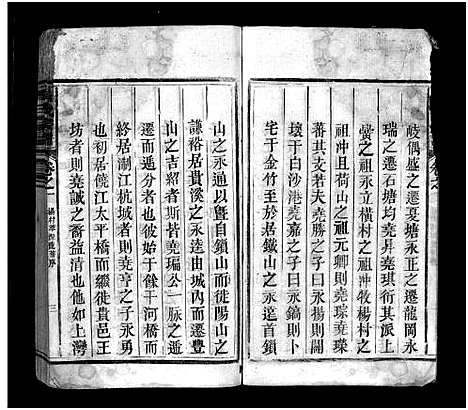 岐偶盛之遷夏塘永正之遷龍岡永
瑞之遷石塘均堯昇堯琪衍其派上
黌之祖永立橫村之祖沖牧楊村之
祖沖且荷山之祖元卿則堯琛堯璨
蕃其支若夫堯勝之子曰永揚則闢
壤于白沙港堯嘉之子曰永鎬則卜
宅于金竹至於居鐵山之永遠首鎖
山之永通以暨自鎖山而徙陽山之
謙裕居貴溪之永達由城內而遷豐
山之吉紹者斯皆堯瑞公一脈之遞
遷而遞分者也彼始于餘干河橋而
終居淛江杭城者則堯亨之子永勇
也初居饒江太平橋而繼徙貴邑王
坊者則堯誠之裔益清也他如上灣
卷之一
三